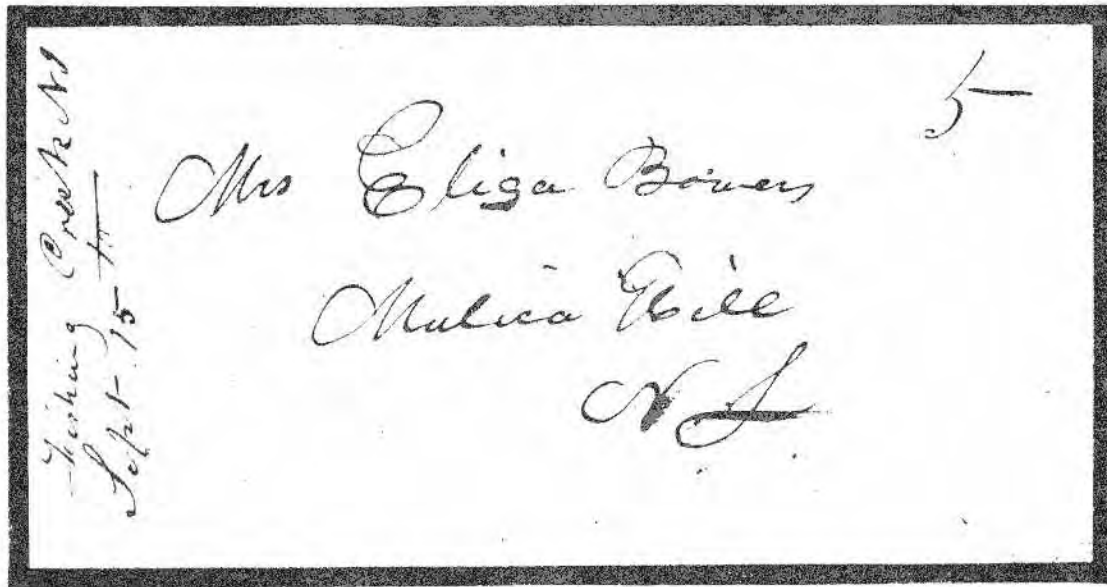 Fishing Creek NJ
Sept 15th
5
Mrs Eliza Bowers
Mulica Hill
N J